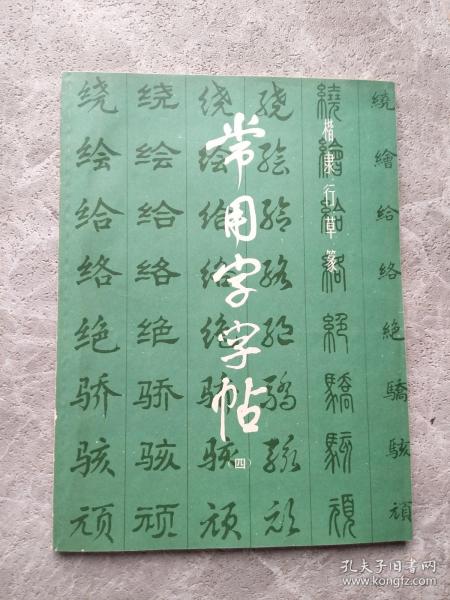 常用字字帖
(四)
楷隶行草篆
绕 绕 绕 绕 繞 繞
绘 绘 绘 绘 繪 繪
给 给 给 给 給 給
络 络 络 络 絡 絡
绝 绝 绝 绝 絕 絶
骄 骄 骄 骄 驕 驕
骇 骇 骇 骇 駭 駭
顽 顽 顽 顽 頑 頑
孔夫子旧书网
www.kongfz.com